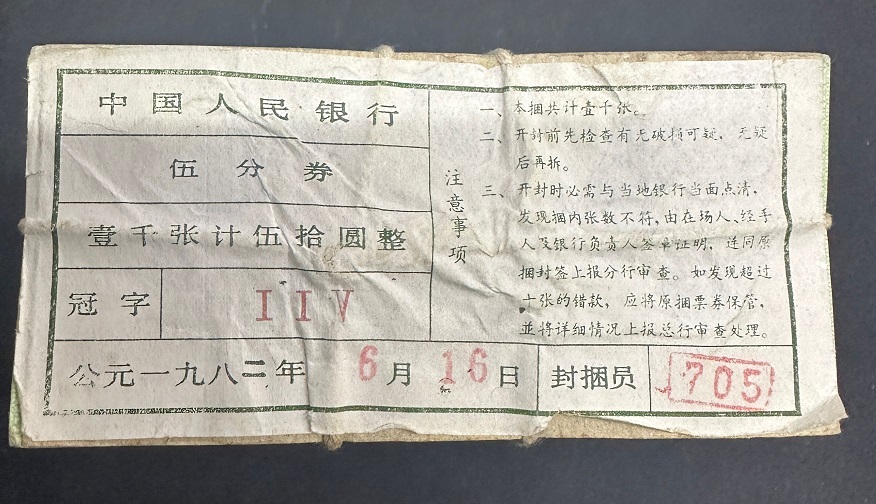 中国人民银行
伍分券
壹千张计伍拾圆整
冠字 IIV
公元一九八二年 6月16日 封捆员 705
注意事项
一、本捆共计壹千张。
二、开封前先检查有无破损可疑，无疑
后再拆。
三、开封时必需与当地银行当面点清，
发现捆内张数不符，由在场人、经手
人及银行负责人签章证明，连同原
捆封签上报分行审查。如发现超过
十张的错款，应将原捆票券保管，
並将详细情况上报总行审查处理。